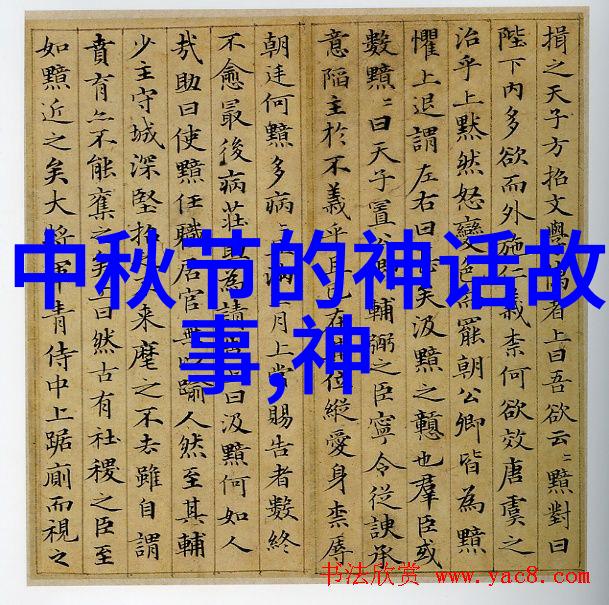 揖之天子方招文學者上曰吾欲云〻黯對曰
陛下內多欲而外施仁義柰何欲效唐虞之
治乎上默然怒變色罷朝公卿皆為黯
懼上退謂左右曰矣汲黯之戇也羣臣或
數黯〻曰天子置公輔弼之臣寧令從諛承
意陷主於不義乎且已在位縱愛身柰辱
朝廷何黯多病滿月上常賜告者數終
不愈最後病莊助為請曰汲黯何如人
哉助曰使黯任職居官無以踰人然至其輔
少主守城深堅招來麾之不去雖自謂
賁育亦不能奪之矣曰然古有社稷之臣至
如黯近之矣大將軍青侍中上踞廁而視之
中秋节的神话故
事,神
书法欣赏 www.yac8.com